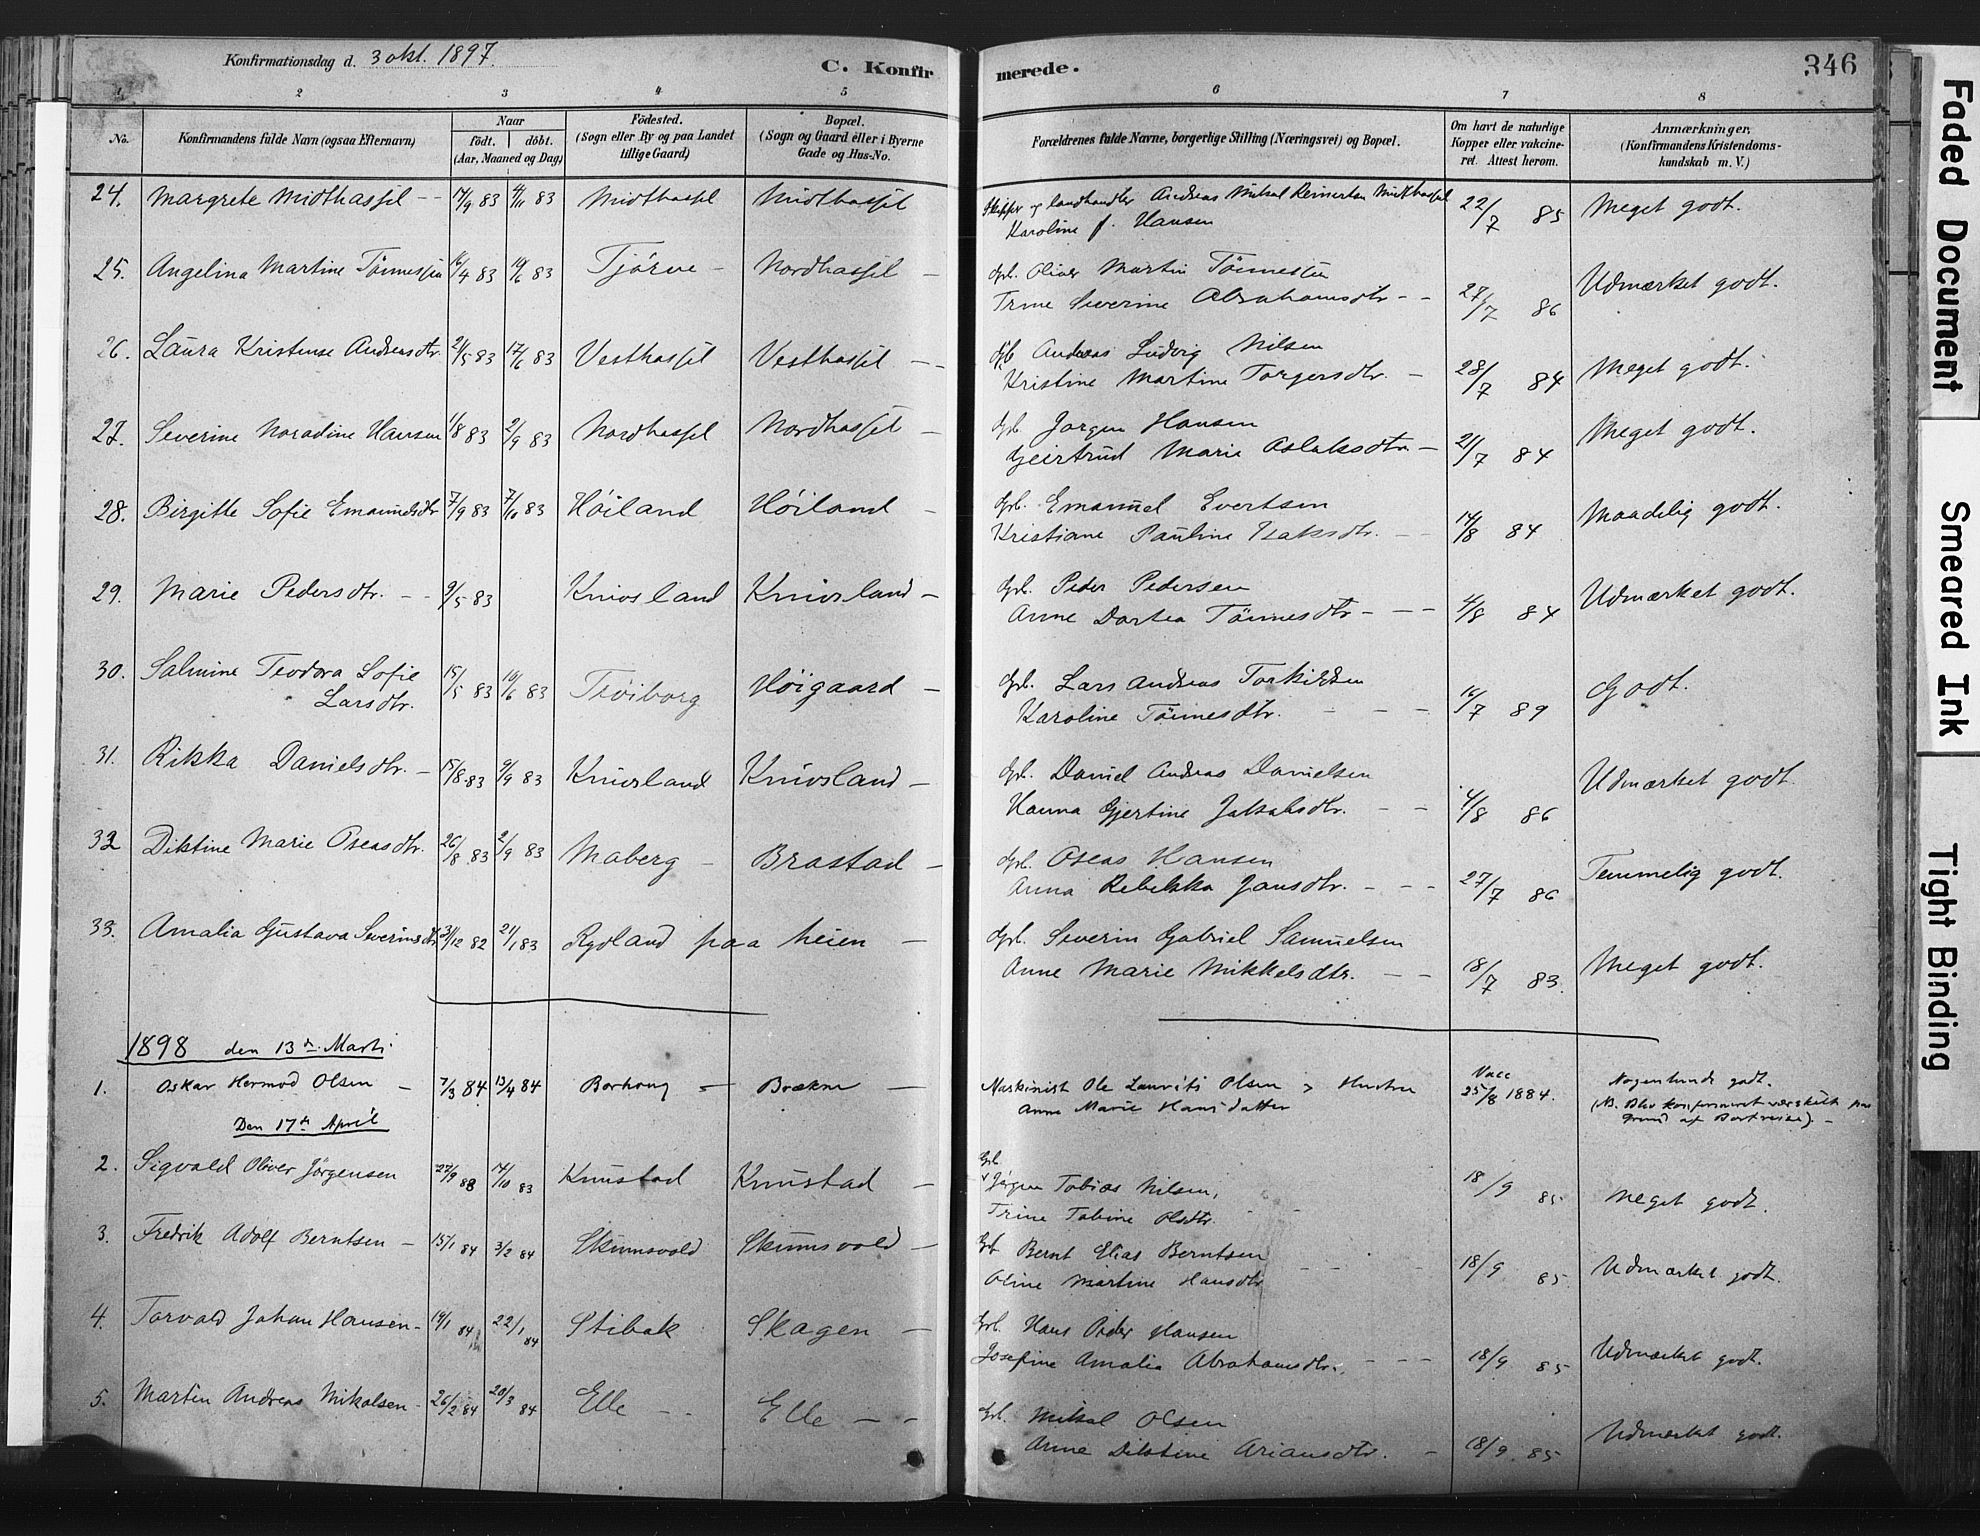 Konfirmationsdag d. 3 okt. 1897.
C. Konfirmerede.
346
1 2 3 4 5 6 7 8
No.
Konfirmandens fulde Navn (ogsaa Efternavn)
Naar
födt. döbt.
(Aar, Maaned og Dag)
Födested.
(Sogn eller By og paa Landet
tillige Gaard)
Bopæl.
(Sogn og Gaard eller i Byerne
Gade og Hus-No.
Forældrenes fulde Navne, borgerlige Stilling (Næringsvei) og Bopæl.
Om havt de naturlige
Kopper eller vakcine-
ret. Attest herom.
Anmærkninger.
(Konfirmandens Kristendoms-
kundskab m. V.)
24. Margrete Midthassel -- 14/9 83 4/11 83 Midthassel Midthassel Skipper og landhandler Andreas Mikal Reinertsen Midthassel 22/7 85 Meget godt.
Karoline f. Hansen
25. Angelina Martine Tönnessen 16/4 83 10/6 83 Tjörve - Nordhassel - Gbr. Oliver Martin Tönnessen Udmærket godt.
Trine Severine Abrahamsdtr -- 27/7 86
26. Laura Kristense Andreasdtr. 21/5 83 17/6 83 Vesthassel Vesthassel - Gbr. Andreas Ludvig Nilsen Meget godt.
Kristine Martine Torgersdtr. - 28/7 84
27. Severine Noradine Hansen 11/8 83 2/9 83 Nordhassel Nordhassel - Gbr. Jørgen Hansen Meget godt.
Geirtrud Marie Aslaksdtr - 21/7 84
28. Birgitte Sofie Emanuelsdtr 7/9 83 7/10 83 Høiland Høiland - Gbr. Emanuel Evertsen Maadelig godt.
Kristiane Pauline Isaksdtr. -- 14/8 84
29. Marie Pedersdtr. -- 9/5 83 Knivsland Knivsland - Gbr. Peder Pedersen Udmærket godt.
Anne Dortea Tönnesdtr --- 4/8 84
30. Salmine Teodora Sofie 15/5 83 10/6 83 Trøiborg Høigaard - Gbr. Lars Andreas Torkildsen Godt.
Larsdtr. Karoline Tönnesdtr. --- 16/7 89
31. Rikka Danielsdtr. - 15/8 83 9/9 83 Knivsland Knivsland - Gbr. Daniel Andreas Danielsen Udmærket godt
Hanna Gjertine Jakobsdtr. -- 4/8 86
32 Diktine Marie Oseasdtr. 26/8 83 2/9 83 Maberg - Brastad - Gbr. Oseas Hansen Temmelig godt.
Anna Rebekka Jansdtr. --- 27/7 86
33. Amalia Gustava Severinsdtr 31/12 82 21/1 83 Rydland paa heien - Gbr. Severin Gabriel Samuelsen Meget godt.
Anne Marie Mikkelsdtr. -- 18/7 83.
1898 den 13de Marti
1. Oskar Hermod Olsen - 7/3 84 13/4 84 Borhaug - Brække - Maskinist Ole Lauritz Olsen > Hustru Vacc 25/8 1884. Nogenlunde godt.
Anne Marie Hansdatter (NB. Blev konfirmeret særskilt paa
Grund af Bortreise). -
Den 17de April
2. Sigvald Oliver Jörgensen 27/9 83 14/10 83 Knustad Knustad - Gbr. Jörgen Tobias Nilsen, 18/9 85 Meget godt.
Trine Tobine Olsdtr.
3. Fredrik Adolf Berntsen - 15/1 84 3/2 84 Skumsvold Skumsvold - Gbr Bernt Elias Berntsen 18/9 85 Udmærket godt.
Oline Martine Hansdtr
4. Torvald Johan Hansen - 14/1 84 22/1 84 Stibak Skagen - Gbr. Hans Peder Hansen Udmærket godt.
Josefine Amalia Abrahamsdtr. --- 18/9 85
5. Martin Andreas Mikalsen - 26/2 84 20/3 84 Elle -- Elle -- Gbr. Mikal Olsen Udmærket godt.
Anne Dilotine Ariansdtr. - 18/9. 85
Faded Document
Smeared Ink
Tight Binding